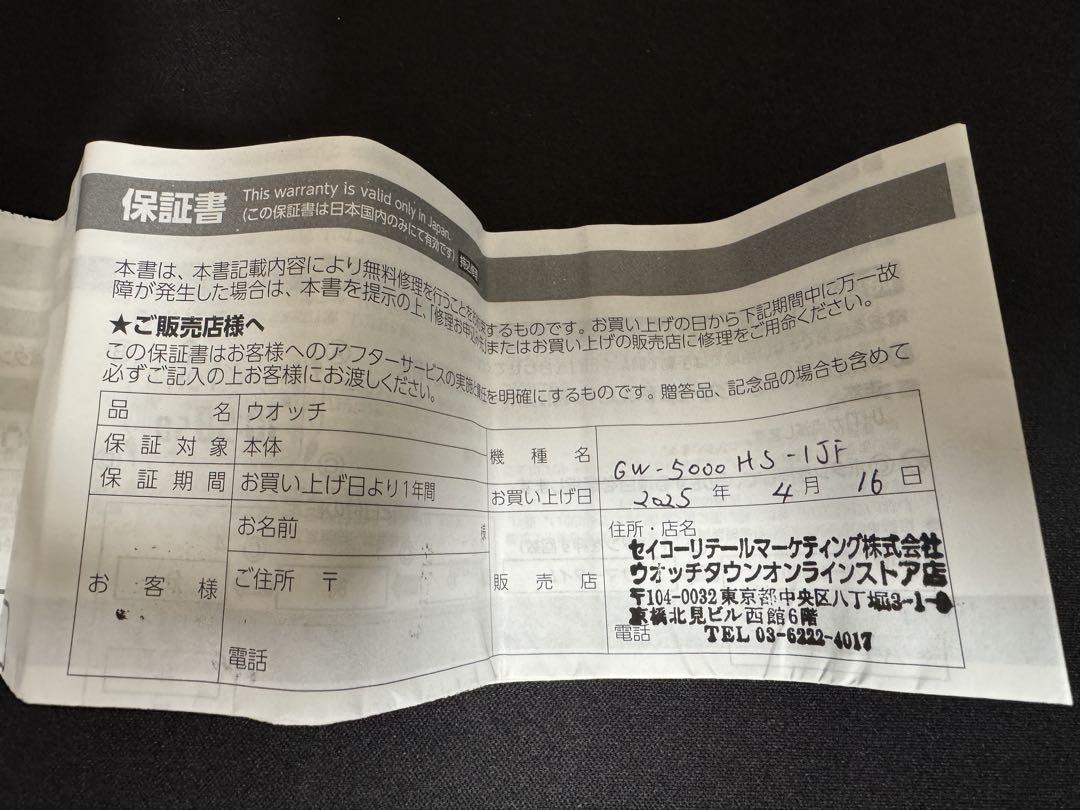 保証書
This warranty is valid only in Japan.
(この保証書は日本国内のみにて有効です)
本書は、本書記載内容により無料修理を行うことをするものです。お買い上げの日から下記期間中に万一故
障が発生した場合は、本書を提示の上、「修理おまたはお買い上げの販売店に修理をご用命ください。
★ご販売店様へ
この保証書はお客様へのアフターサービスの実施と責任を明確にするものです。贈答品、記念品の場合も含めて
必ずご記入の上お客様にお渡しください。
品名 ウオッチ
保証対象 本体
機種名 GW-5000HS-1JF
保証期間 お買い上げ日より1年間
お買い上げ日 2025年 4月 16日
お客様
お名前 様
ご住所 〒
電話
販売店
住所・店名
セイコーリテールマーケティング株式会社
ウオッチタウンオンラインストア店
〒104-0032東京都中央区八丁堀3-1-
京橋北見ビル西館6階
電話 TEL 03-6222-4017